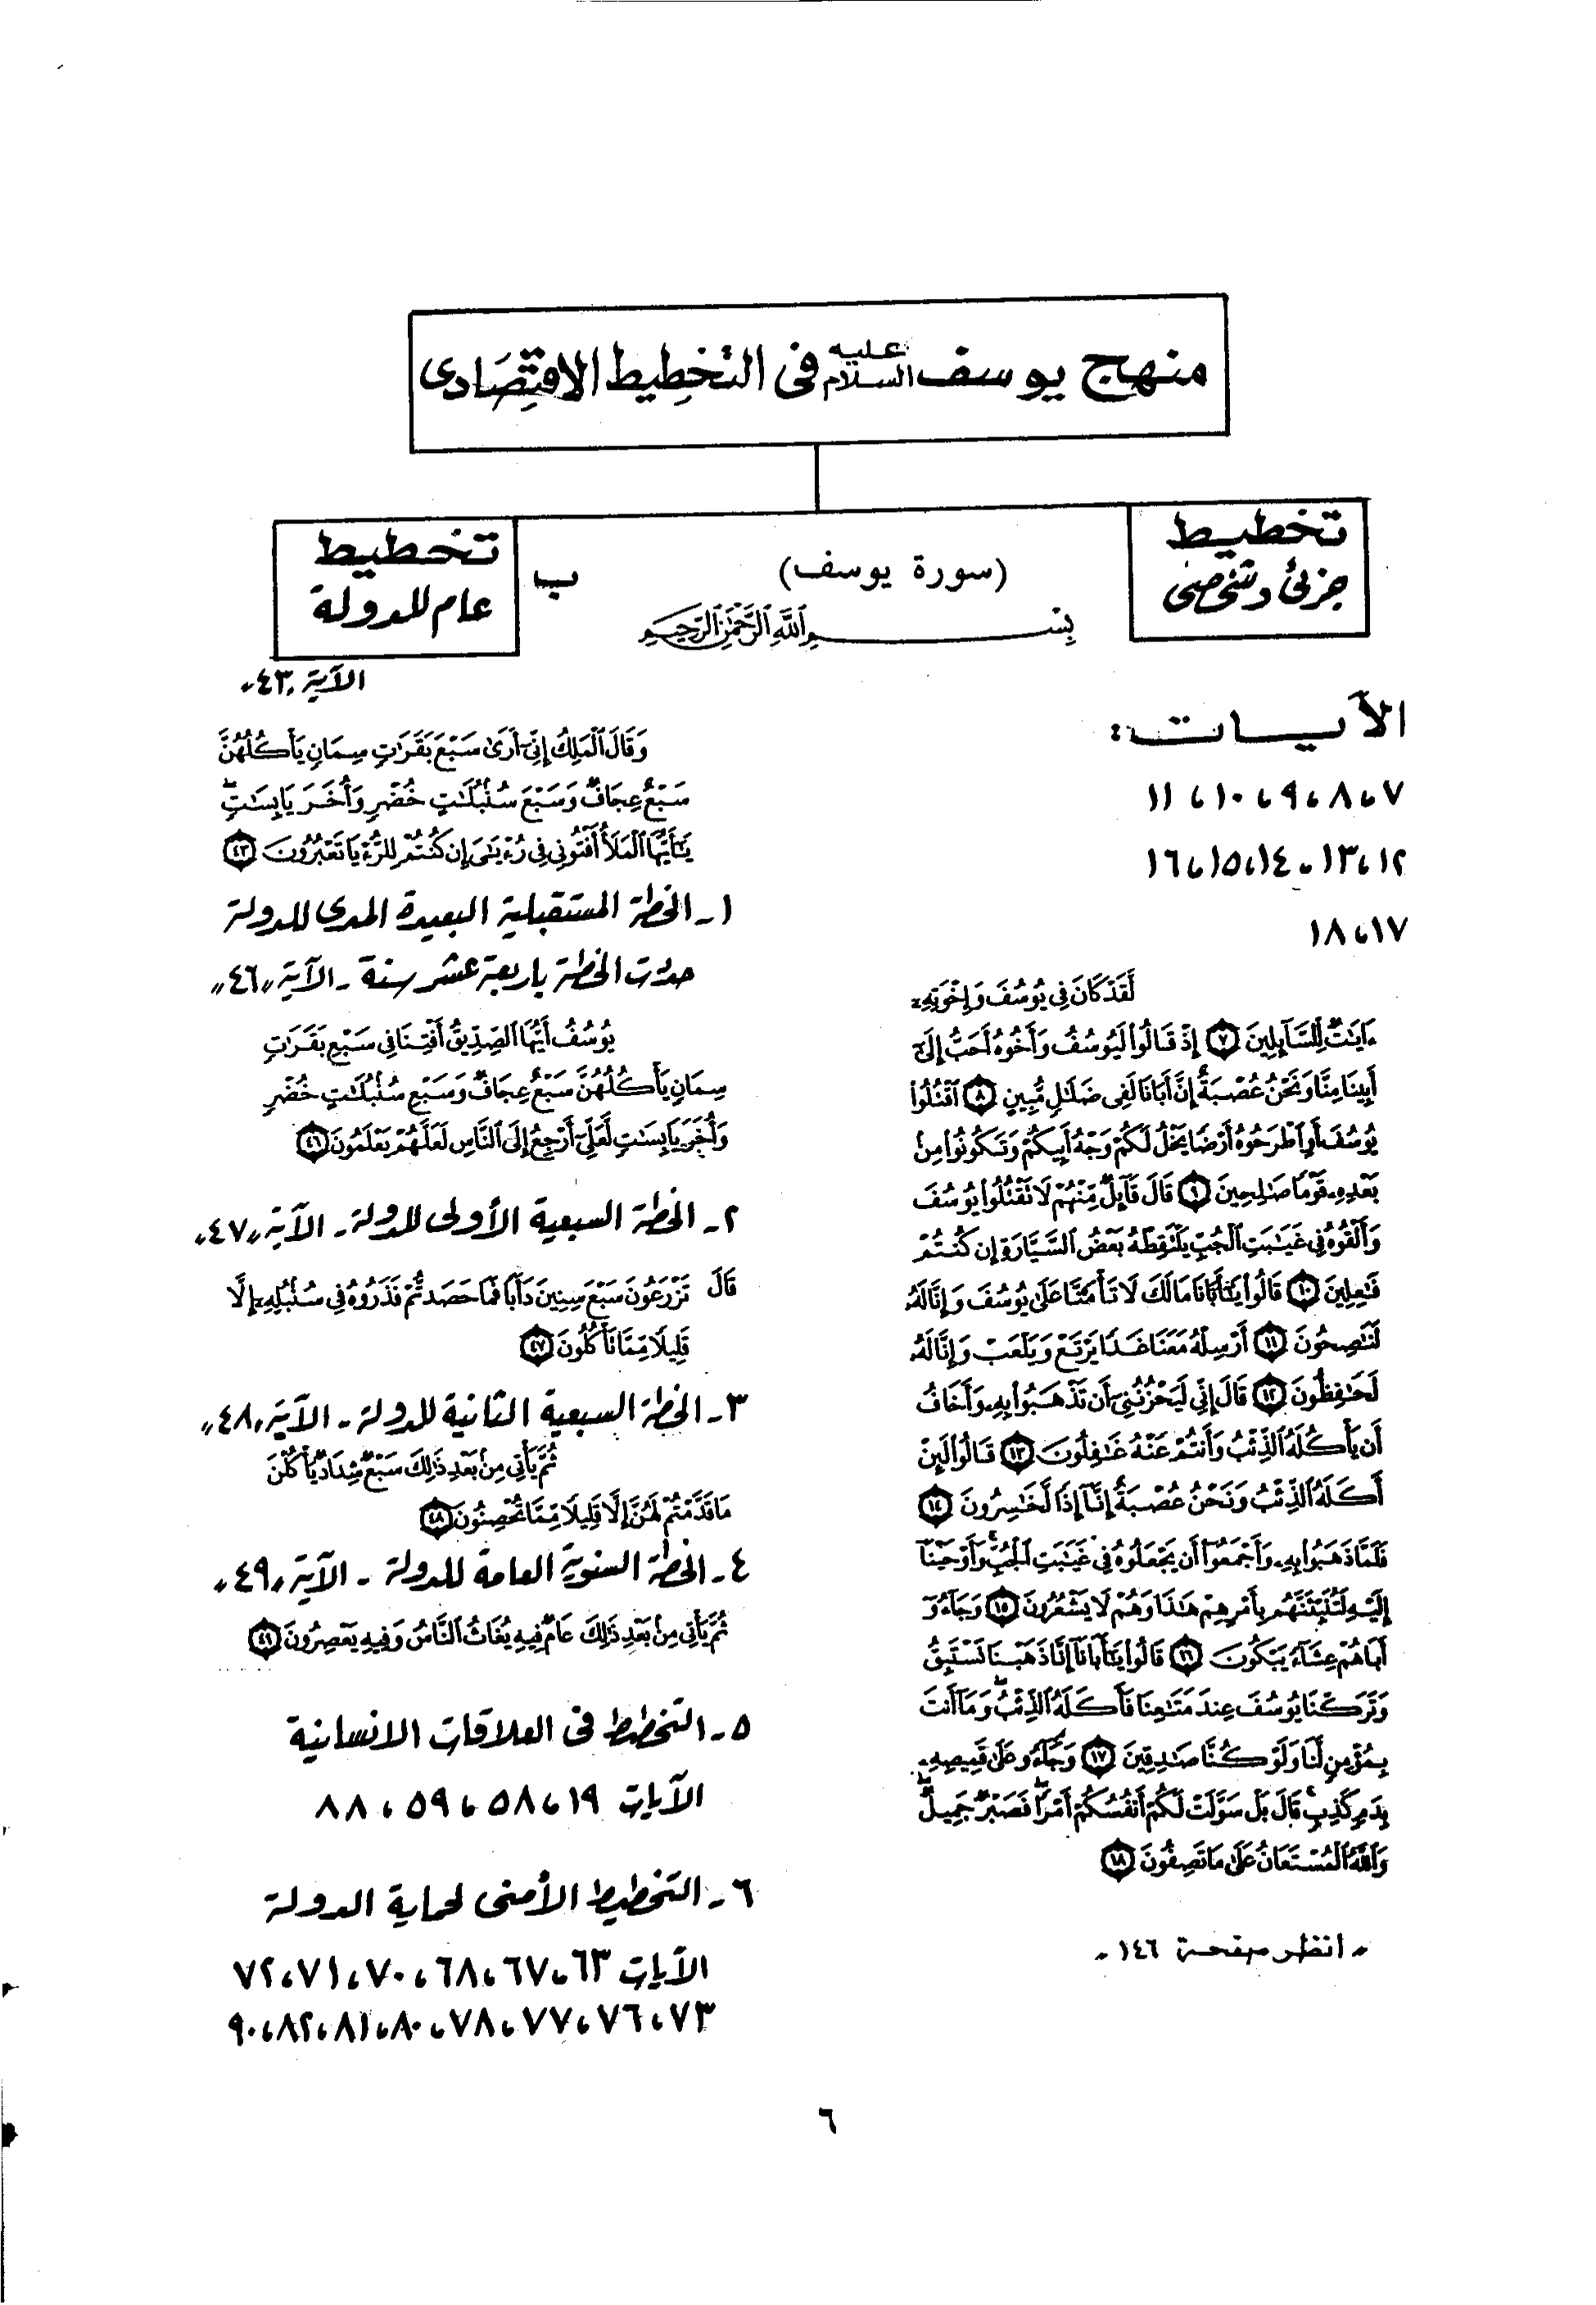 منهج يوسف عليه السلام فى التخطيط الاقتصادى
تخطيط
جزئى وشخصى
(سورة يوسف)
بِسْمِ اللَّهِ الرَّحْمَٰنِ الرَّحِيمِ
ب
تخطيط
عام للدولة
الآيات :
٧ ، ٨ ، ٩ ، ١٠ ، ١١
١٢ ، ١٣ ، ١٤ ، ١٥ ، ١٦
١٧ ، ١٨
لَّقَدْ كَانَ فِى يُوسُفَ وَإِخْوَتِهِۦٓ
ءَايَٰتٌ لِّلسَّآئِلِينَ ٧ إِذْ قَالُوا۟ لَيُوسُفُ وَأَخُوهُ أَحَبُّ إِلَىٰٓ
أَبِينَا مِنَّا وَنَحْنُ عُصْبَةٌ إِنَّ أَبَانَا لَفِى ضَلَٰلٍ مُّبِينٍ ٨ ٱقْتُلُوا۟
يُوسُفَ أَوِ ٱطْرَحُوهُ أَرْضًا يَخْلُ لَكُمْ وَجْهُ أَبِيكُمْ وَتَكُونُوا۟ مِنۢ
بَعْدِهِۦ قَوْمًا صَٰلِحِينَ ٩ قَالَ قَآئِلٌ مِّنْهُمْ لَا تَقْتُلُوا۟ يُوسُفَ
وَأَلْقُوهُ فِى غَيَٰبَتِ ٱلْجُبِّ يَلْتَقِطْهُ بَعْضُ ٱلسَّيَّارَةِ إِن كُنتُمْ
فَٰعِلِينَ ١٠ قَالُوا۟ يَٰٓأَبَانَا مَا لَكَ لَا تَأْمَ۫نَّا عَلَىٰ يُوسُفَ وَإِنَّا لَهُۥ
لَنَٰصِحُونَ ١١ أَرْسِلْهُ مَعَنَا غَدًا يَرْتَعْ وَيَلْعَبْ وَإِنَّا لَهُۥ
لَحَٰفِظُونَ ١٢ قَالَ إِنِّى لَيَحْزُنُنِىٓ أَن تَذْهَبُوا۟ بِهِۦ وَأَخَافُ
أَن يَأْكُلَهُ ٱلذِّئْبُ وَأَنتُمْ عَنْهُ غَٰفِلُونَ ١٣ قَالُوا۟ لَئِنْ
أَكَلَهُ ٱلذِّئْبُ وَنَحْنُ عُصْبَةٌ إِنَّآ إِذًا لَّخَٰسِرُونَ ١٤
فَلَمَّا ذَهَبُوا۟ بِهِۦ وَأَجْمَعُوٓا۟ أَن يَجْعَلُوهُ فِى غَيَٰبَتِ ٱلْجُبِّ وَأَوْحَيْنَآ
إِلَيْهِ لَتُنَبِّئَنَّهُم بِأَمْرِهِمْ هَٰذَا وَهُمْ لَا يَشْعُرُونَ ١٥ وَجَآءُوٓ
أَبَاهُمْ عِشَآءً يَبْكُونَ ١٦ قَالُوا۟ يَٰٓأَبَانَآ إِنَّا ذَهَبْنَا نَسْتَبِقُ
وَتَرَكْنَا يُوسُفَ عِندَ مَتَٰعِنَا فَأَكَلَهُ ٱلذِّئْبُ وَمَآ أَنتَ
بِمُؤْمِنٍ لَّنَا وَلَوْ كُنَّا صَٰدِقِينَ ١٧ وَجَآءُو عَلَىٰ قَمِيصِهِۦ
بِدَمٍ كَذِبٍ قَالَ بَلْ سَوَّلَتْ لَكُمْ أَنفُسُكُمْ أَمْرًا فَصَبْرٌ جَمِيلٌ
وَٱللَّهُ ٱلْمُسْتَعَانُ عَلَىٰ مَا تَصِفُونَ ١٨
« انظر صفحة ١٤٦ »
الآية «٤٣»
وَقَالَ ٱلْمَلِكُ إِنِّىٓ أَرَىٰ سَبْعَ بَقَرَٰتٍ سِمَانٍ يَأْكُلُهُنَّ
سَبْعٌ عِجَافٌ وَسَبْعَ سُنۢبُلَٰتٍ خُضْرٍ وَأُخَرَ يَابِسَٰتٍ
يَٰٓأَيُّهَا ٱلْمَلَأُ أَفْتُونِى فِى رُءْيَٰىَ إِن كُنتُمْ لِلرُّءْيَا تَعْبُرُونَ ٤٣
١ - الخطة المستقبلية البعيدة المدى للدولة
حددت الخطة باربعة عشر سنة - الآية «٤٦»
يُوسُفُ أَيُّهَا ٱلصِّدِّيقُ أَفْتِنَا فِى سَبْعِ بَقَرَٰتٍ
سِمَانٍ يَأْكُلُهُنَّ سَبْعٌ عِجَافٌ وَسَبْعِ سُنۢبُلَٰتٍ خُضْرٍ
وَأُخَرَ يَابِسَٰتٍ لَّعَلِّىٓ أَرْجِعُ إِلَى ٱلنَّاسِ لَعَلَّهُمْ يَعْلَمُونَ ٤٦
٢ - الخطة السبعية الأولى للدولة - الآية «٤٧»
قَالَ تَزْرَعُونَ سَبْعَ سِنِينَ دَأَبًا فَمَا حَصَدتُّمْ فَذَرُوهُ فِى سُنۢبُلِهِۦٓ إِلَّا
قَلِيلًا مِّمَّا تَأْكُلُونَ ٤٧
٣ - الخطة السبعية الثانية للدولة - الآية «٤٨»
ثُمَّ يَأْتِى مِنۢ بَعْدِ ذَٰلِكَ سَبْعٌ شِدَادٌ يَأْكُلْنَ
مَا قَدَّمْتُمْ لَهُنَّ إِلَّا قَلِيلًا مِّمَّا تُحْصِنُونَ ٤٨
٤ - الخطة السنوية العامة للدولة - الآية «٤٩»
ثُمَّ يَأْتِى مِنۢ بَعْدِ ذَٰلِكَ عَامٌ فِيهِ يُغَاثُ ٱلنَّاسُ وَفِيهِ يَعْصِرُونَ ٤٩
٥ - التخطيط فى العلاقات الانسانية
الآيات ١٩ ، ٥٨ ، ٥٩ ، ٨٨
٦ - التخطيط الأمنى لحماية الدولة
الآيات ٦٣ ، ٦٧ ، ٦٨ ، ٧٠ ، ٧١ ، ٧٢
٧٣ ، ٧٦ ، ٧٧ ، ٧٨ ، ٨٠ ، ٨١ ، ٨٢ ، ٩٠
٦